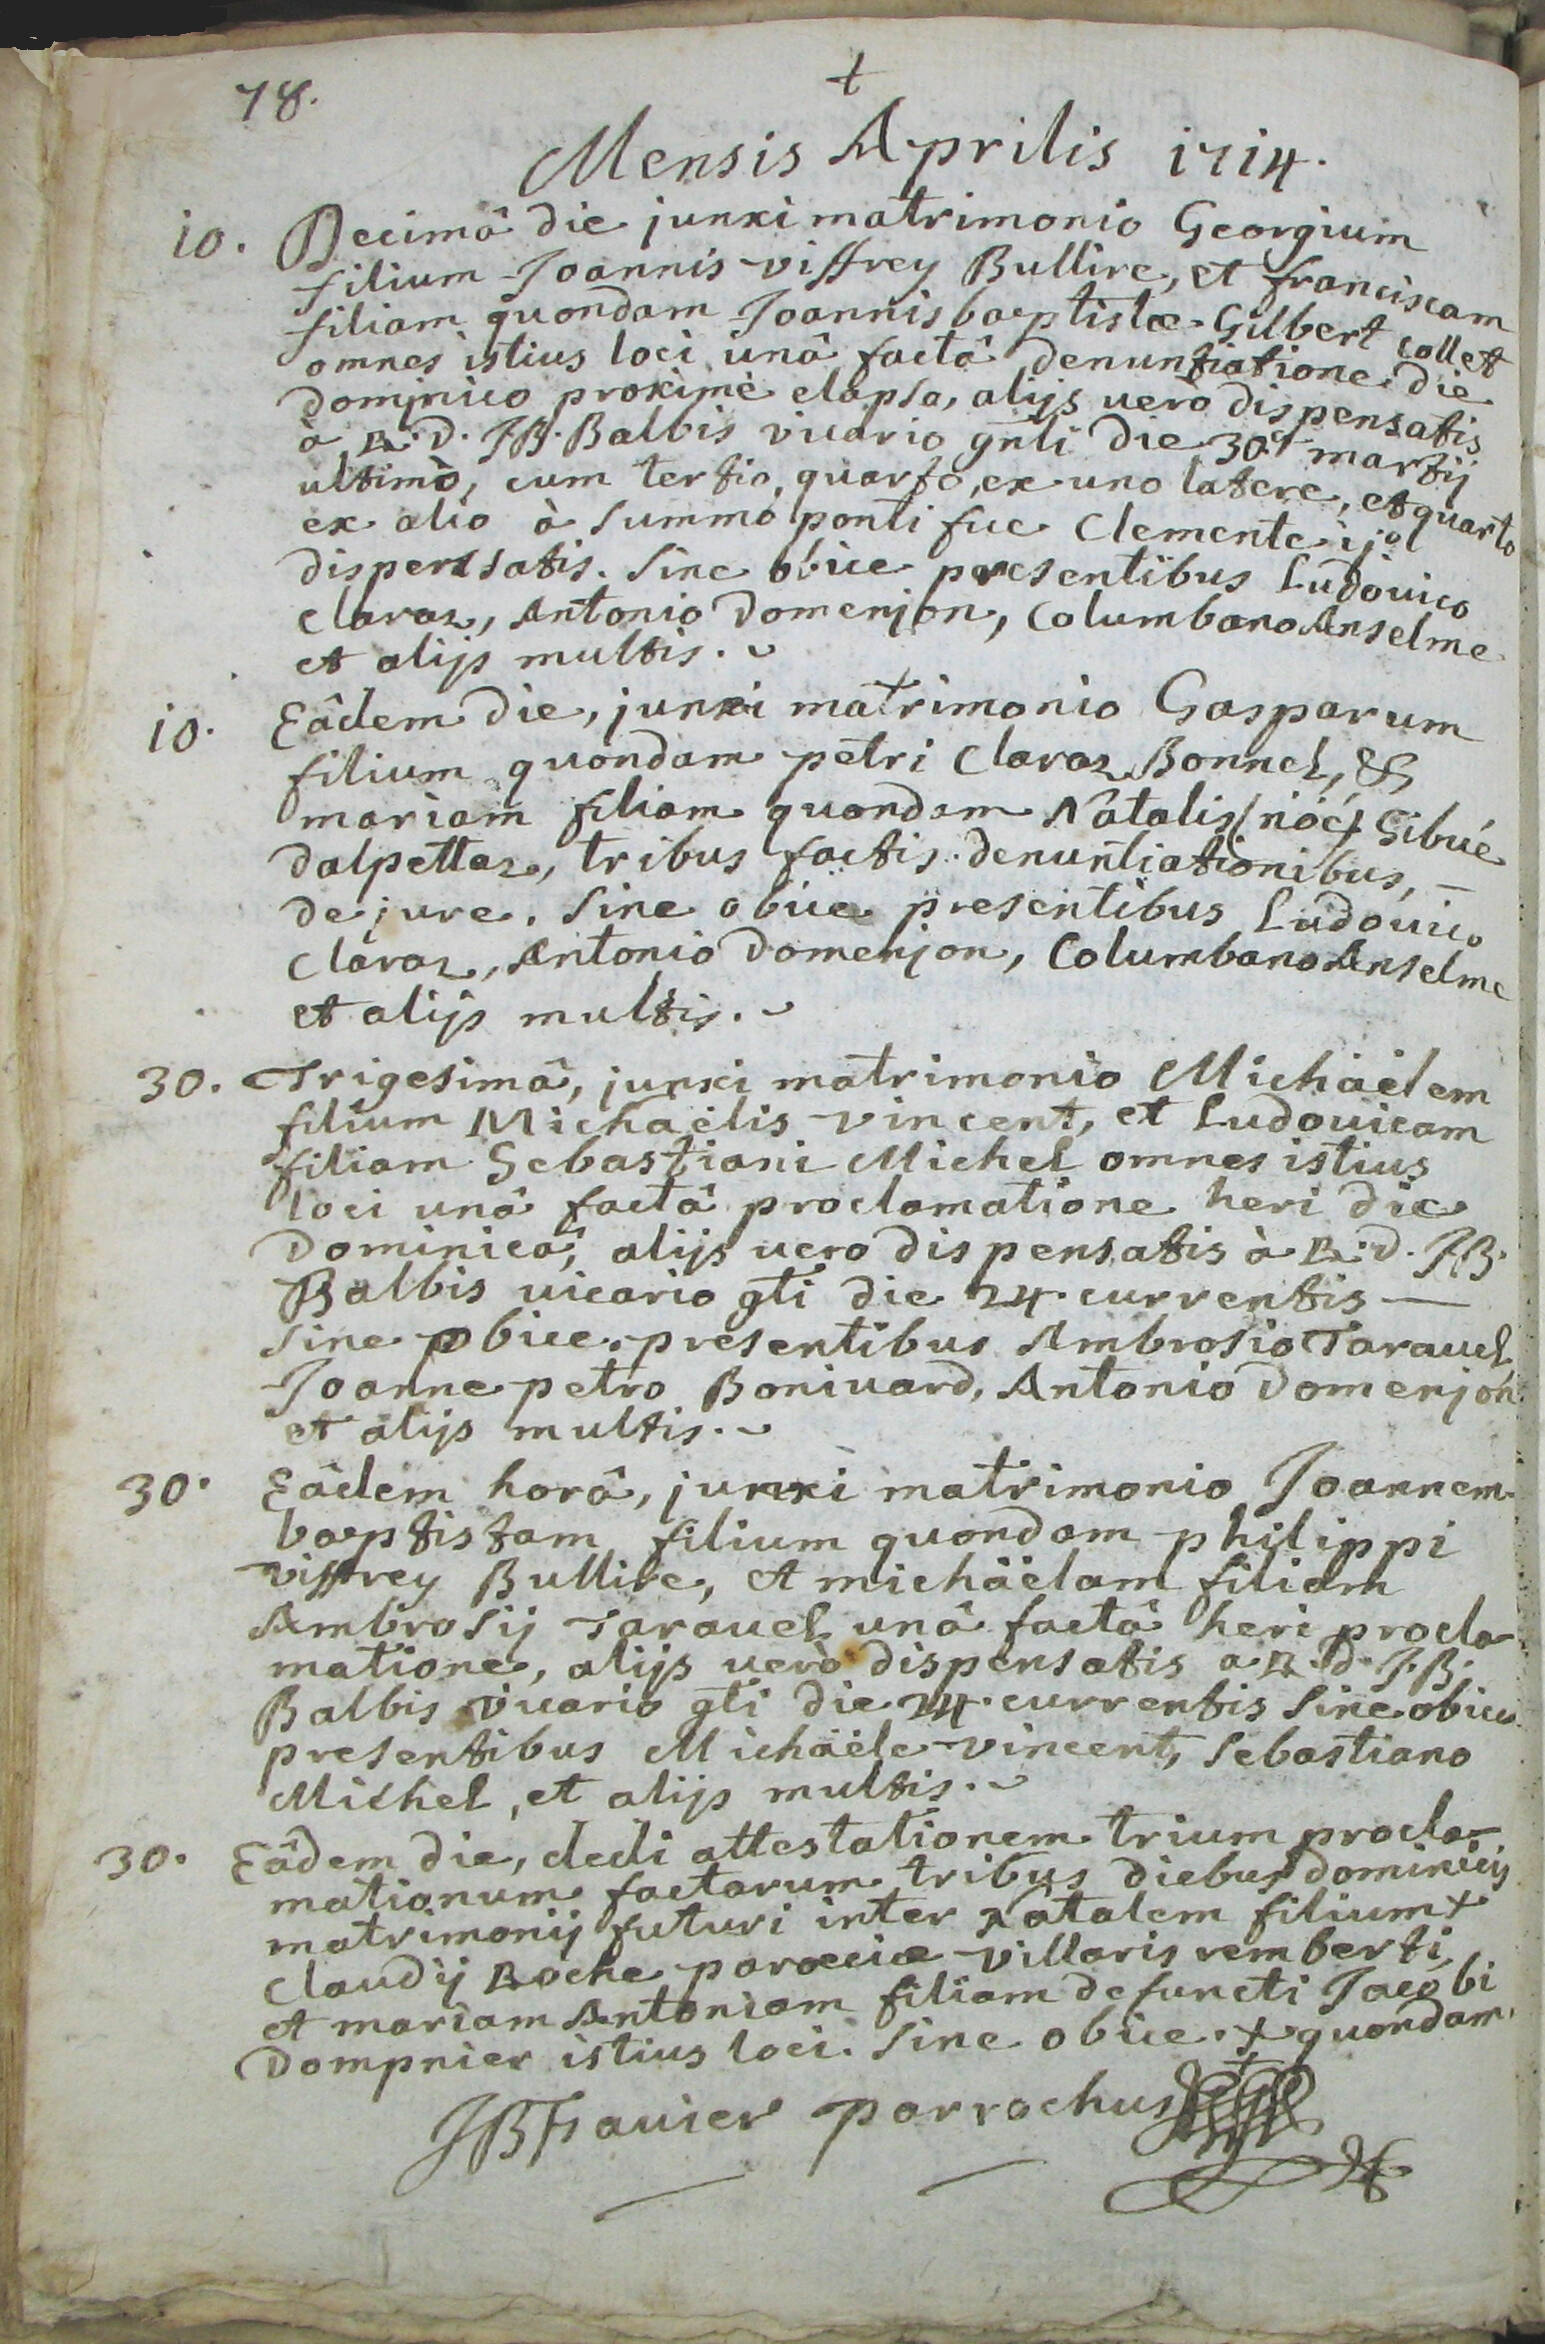 78.
+
Mensis Aprilis 1714.
10. Decimâ die junxi matrimonio Georgium
filium Joannis Viffrey Bullire, et franciscam
filiam quondam Joannis baptistæ Gilbert collet
omnes istius loci unâ factâ denuntiatione die
dominico proximè elapsa, alijs uerò dispensatis
à R.D. JB. Balbis vicario gnli die 30ª martij
ultimò, cum tertio, quarto, ex uno latere, et quarto
ex alio à summo pontifice Clemente ijº
dispensatis. Sine obice presentibus Ludouico
Claraz, Antonio Domenjon, Columbano Anselme
et alijs multis.
10. Eâdem die, junxi matrimonio Gasparum
filium quondam petri Claraz Bonnel, &
mariam filiam quondam Natalis (nöe) Gibué
dalpettaz, tribus factis denuntiationibus, —
de jure. Sine obice presentibus Ludouico
Claraz, Antonio Domenjon, Columbano Anselme
et alijs multis.
30. Trigesimâ, junxi matrimonio Michäelem
filium Michaëlis vincent, et Ludouicam
filiam Sebastiani Michel omnes istius
loci unâ factâ proclamatione heri die
Dominicâ, alijs uero dispensatis à R.D. JB.
Balbis uicario gti die 24 currentis —
Sine obice presentibus Ambrosio Tarauel
Joanne petro Boniuard, Antonio Domenjon
et alijs multis.
30. Eâdem horâ, junxi matrimonio Joannem
baptistam filium quondam philippi
viffrey Bullire, et michäelam filiam
Ambrosij Tarauel unâ factâ heri procla-
matione, alijs uerò dispensatis a R.D. J.B.
Balbis vicario gti die 24 currentis Sine obice
presentibus Michäele vincent, Sebastiano
Michel, et alijs multis.
30. Eâdem die, dedi attestationem trium procla-
mationum factarum tribus diebus dominicis
matrimonij futuri inter Natalem filium +
Claudij Roche paroeciæ villaris remberti,
et mariam Antoniam filiam defuncti Jacobi
Dompnier istius loci. Sine obice. + quondam
parrochus